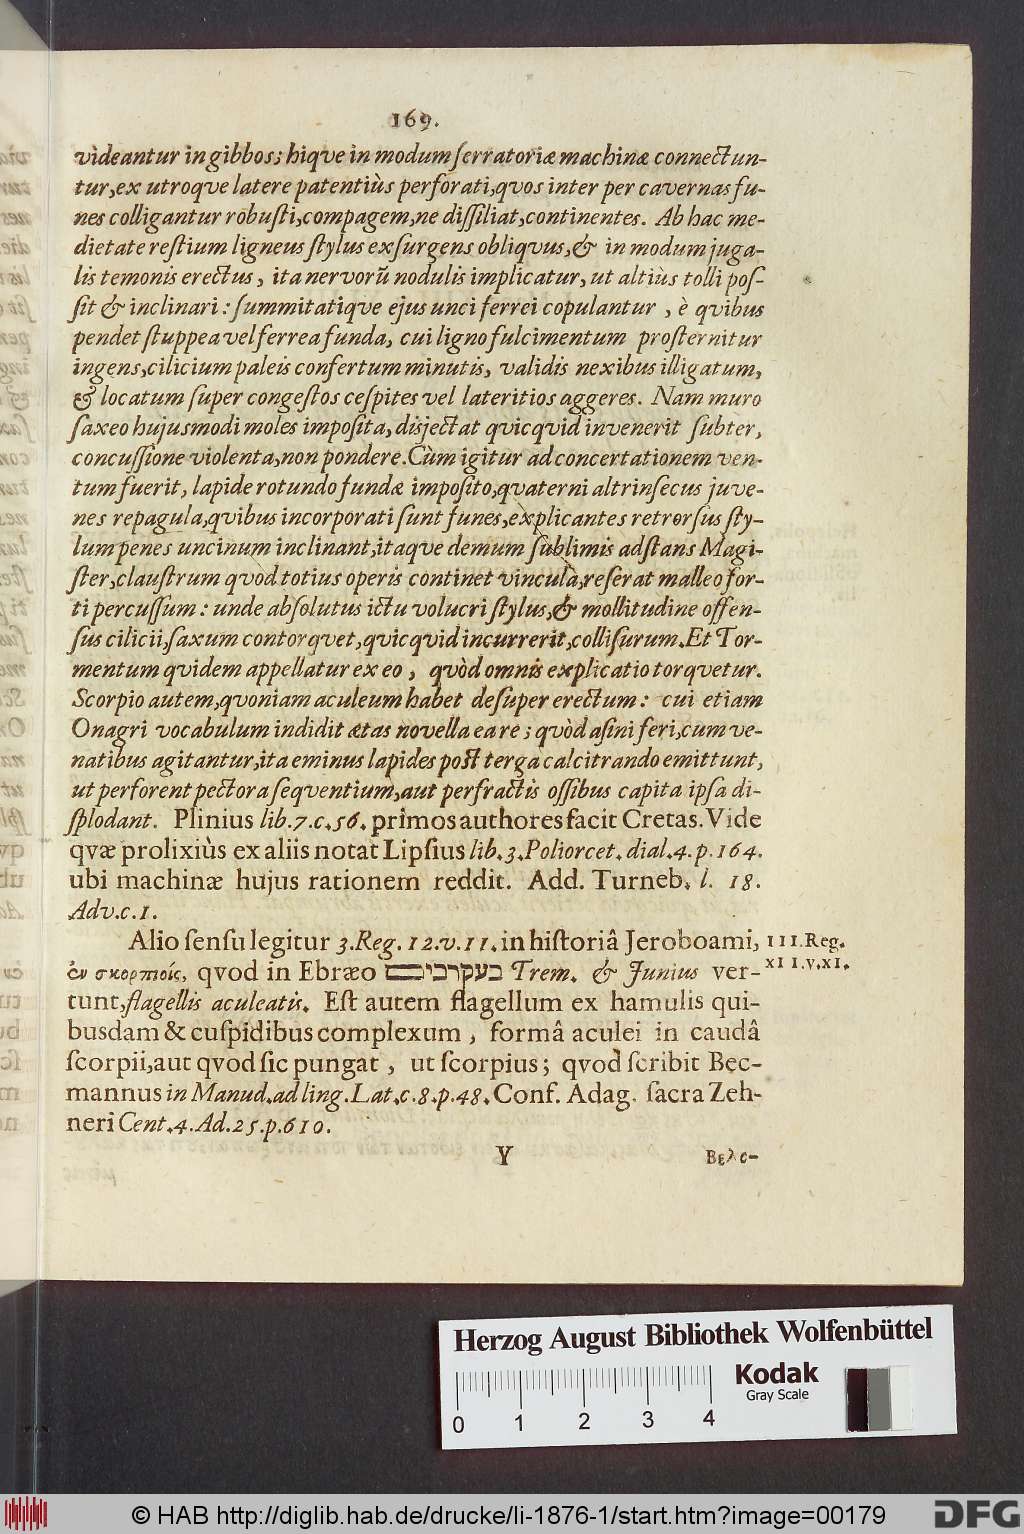 169.
videantur in gibbos; hiqve in modum ſerratoriæ machinæ connectun-
tur, ex utroqve latere patentiùs perforati, qvos inter per cavernas fu-
nes colligantur robuſti, compagem, ne diſſiliat, continentes. Ab hac me-
dietate reſtium ligneus ſtylus exſurgens obliqvus, & in modum juga-
lis temonis erectus, ita nervorũ nodulis implicatur, ut altiùs tolli poſ-
ſit & inclinari: ſummitatiqve ejus unci ferrei copulantur, è qvibus
pendet ſtuppea vel ferrea funda, cui ligno fulcimentum proſternitur
ingens, cilicium paleis confertum minutis, validis nexibus illigatum,
& locatum ſuper congeſtos ceſpites vel lateritios aggeres. Nam muro
ſaxeo hujusmodi moles impoſita, disjectat qvicqvid invenerit ſubter,
concuſſione violenta, non pondere. Cùm igitur ad concertationem ven-
tum fuerit, lapide rotundo fundæ impoſito, qvaterni altrinſecus juve-
nes repagula, qvibus incorporati ſunt funes, explicantes retrorſus ſty-
lum penes uncinum inclinant, itaqve demum ſublimis adſtans Magi-
ſter, clauſtrum qvod totius operis continet vincula, reſerat malleo for-
ti percuſſum: unde abſolutus ictu volucri ſtylus, & mollitudine offen-
ſus cilicii, ſaxum contorqvet, qvicqvid incurrerit, colliſurum. Et Tor-
mentum qvidem appellatur ex eo, qvòd omnis explicatio torqvetur.
Scorpio autem, qvoniam aculeum habet deſuper erectum: cui etiam
Onagri vocabulum indidit ætas novella ea re; qvòd aſini feri, cum ve-
natibus agitantur, ita eminus lapides poſt terga calcitrando emittunt,
ut perforent pectora ſeqventium, aut perfractis oſſibus capita ipſa di-
ſplodant. Plinius lib. 7. c. 56. primos authores facit Cretas. Vide
qvæ prolixiùs ex aliis notat Lipſius lib. 3. Poliorcet. dial. 4. p. 164.
ubi machinæ hujus rationem reddit. Add. Turneb. l. 18.
Adv. c. 1.
Alio ſenſu legitur 3. Reg. 12. v. 11. in hiſtoriâ Jeroboami, III. Reg.
ἐν σκορπιοίς, qvod in Ebræo בעקרבים Trem. & Junius ver- XII. v. XI.
tunt, flagellis aculeatis. Eſt autem flagellum ex hamulis qui-
busdam & cuſpidibus complexum, formâ aculei in caudâ
ſcorpii, aut qvod ſic pungat, ut ſcorpius; qvod ſcribit Bec-
mannus in Manud. ad ling. Lat. c. 8. p. 48. Conf. Adag. ſacra Zeh-
neri Cent. 4. Ad. 25. p. 610.
Y Βελο-
Herzog August Bibliothek Wolfenbüttel
Kodak
Gray Scale
0 1 2 3 4
© HAB http://diglib.hab.de/drucke/li-1876-1/start.htm?image=00179
DFG